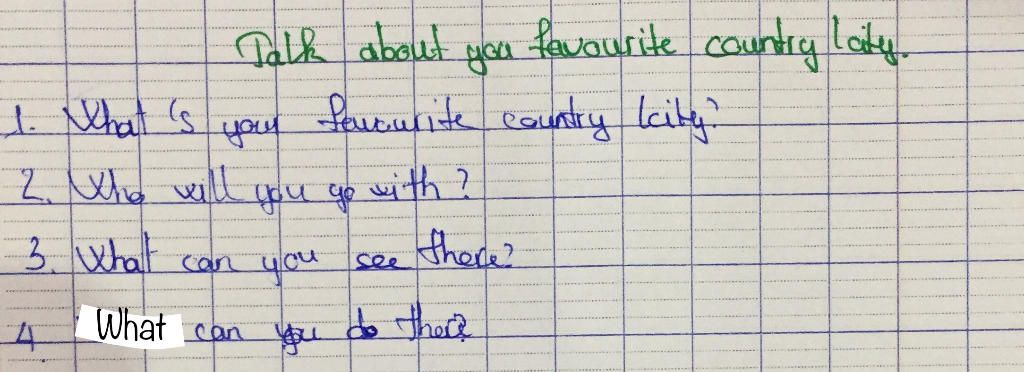 Talk about you favourite country/city.
1. What's your favourite country/city?
2. Who will you go with?
3. What can you see there?
4. What can you do there?